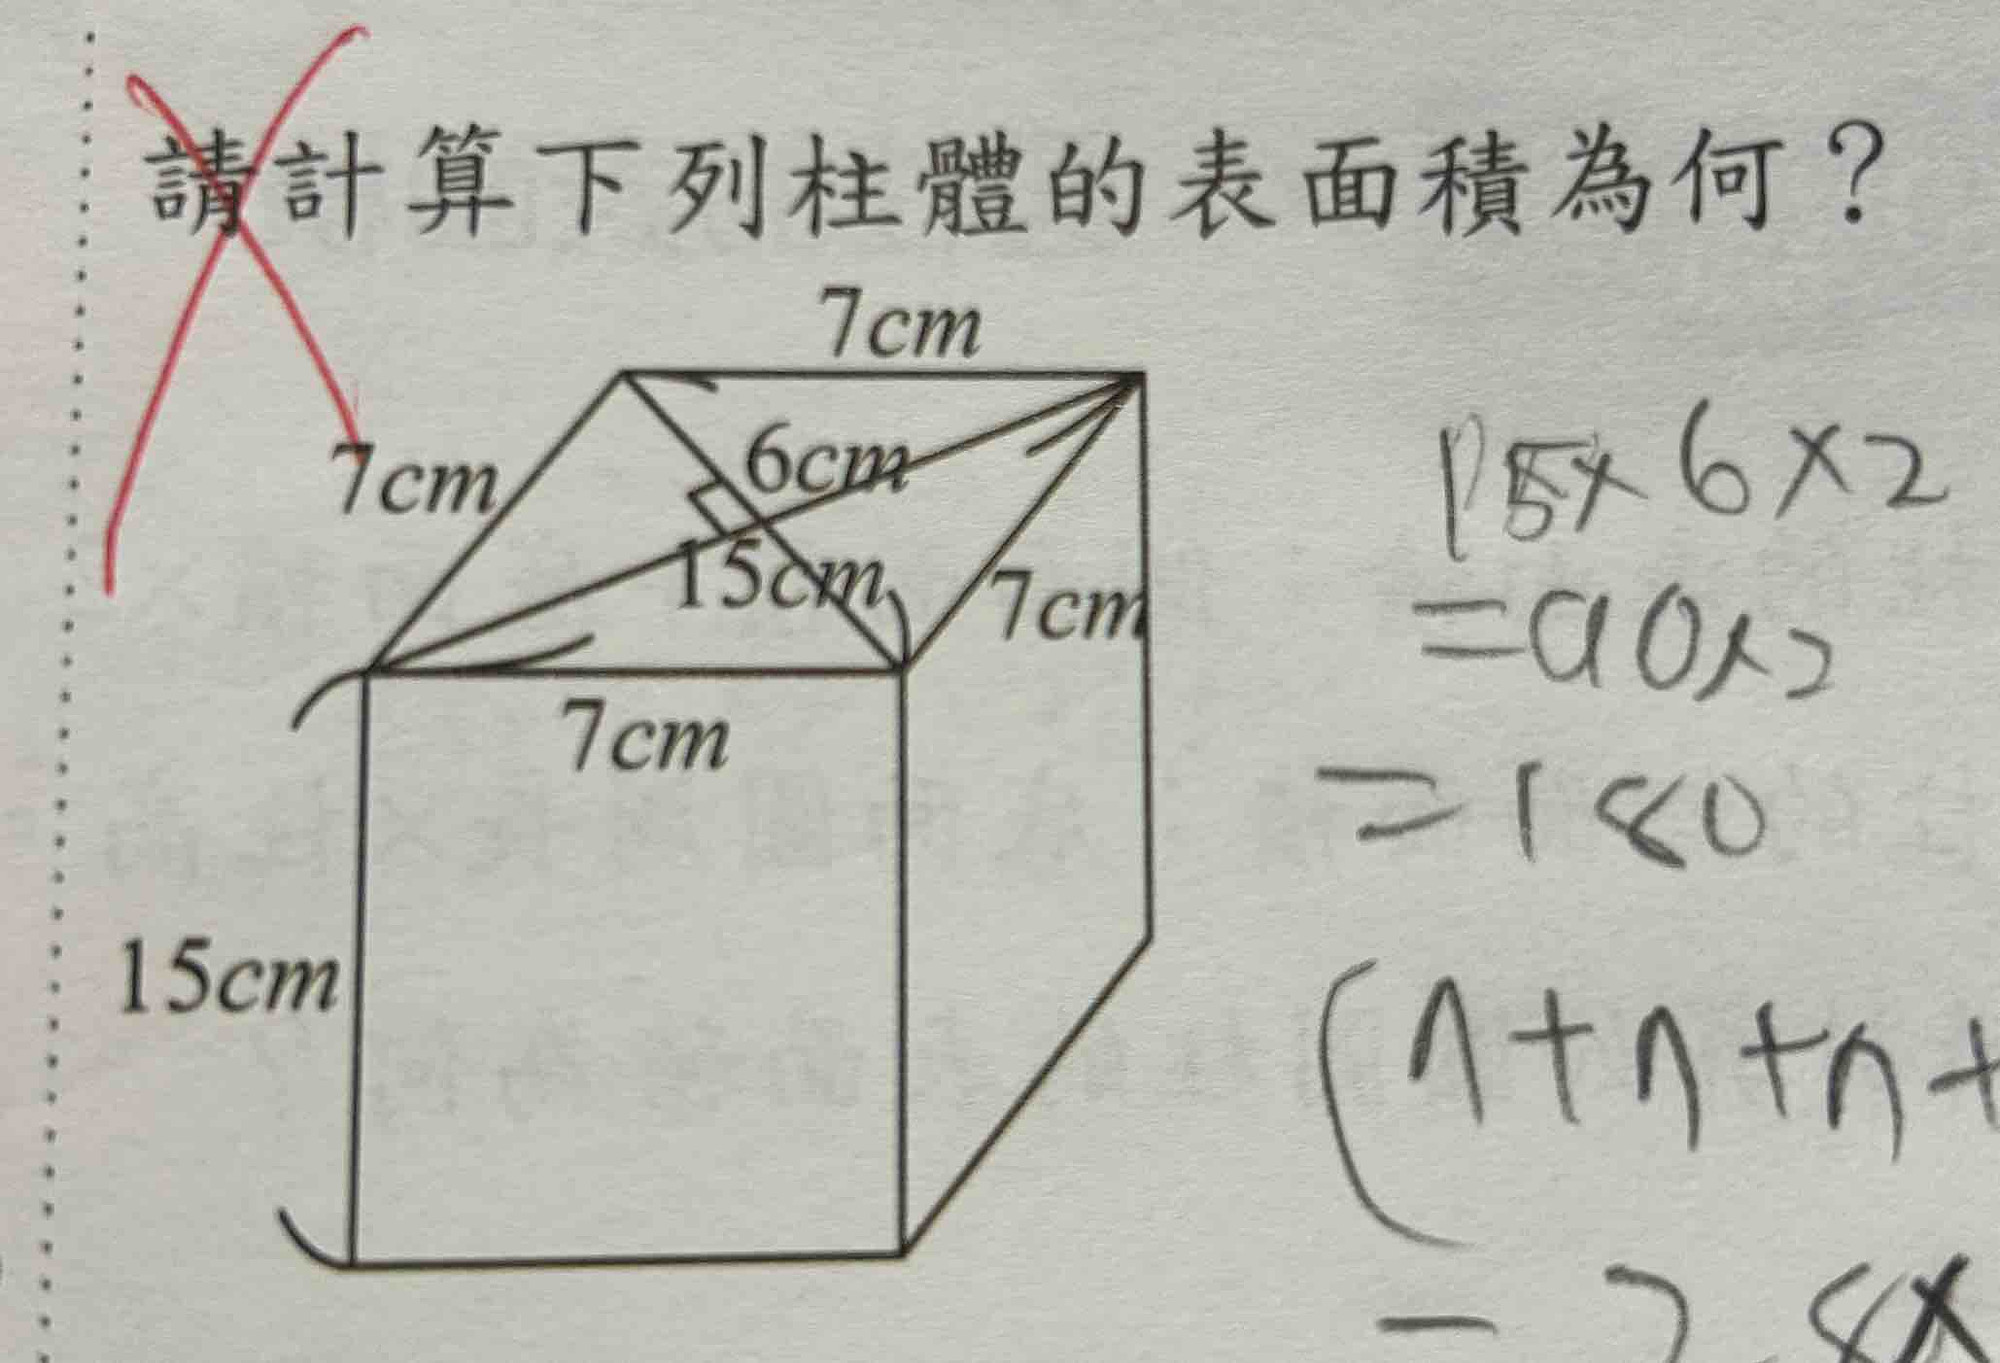 請計算下列柱體的表面積為何？
7cm
7cm
6cm
15cm
7cm
7cm
15cm
15×6×2
=90×2
=180
(7+7+7+
=28×